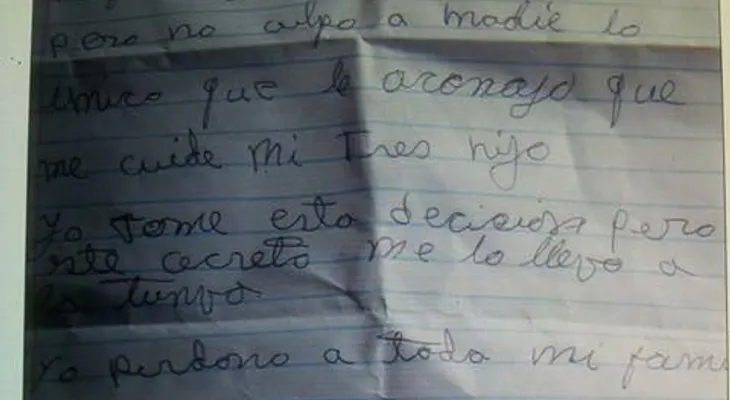 pero no culpo a madie lo
unico que le aconajo que
me cuide mi Tres hijo
yo tome esta decicion pero
este cecreto me lo llevo a
la tunva
yo perdono a toda mi fami